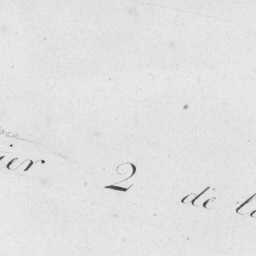 ier 2 de la